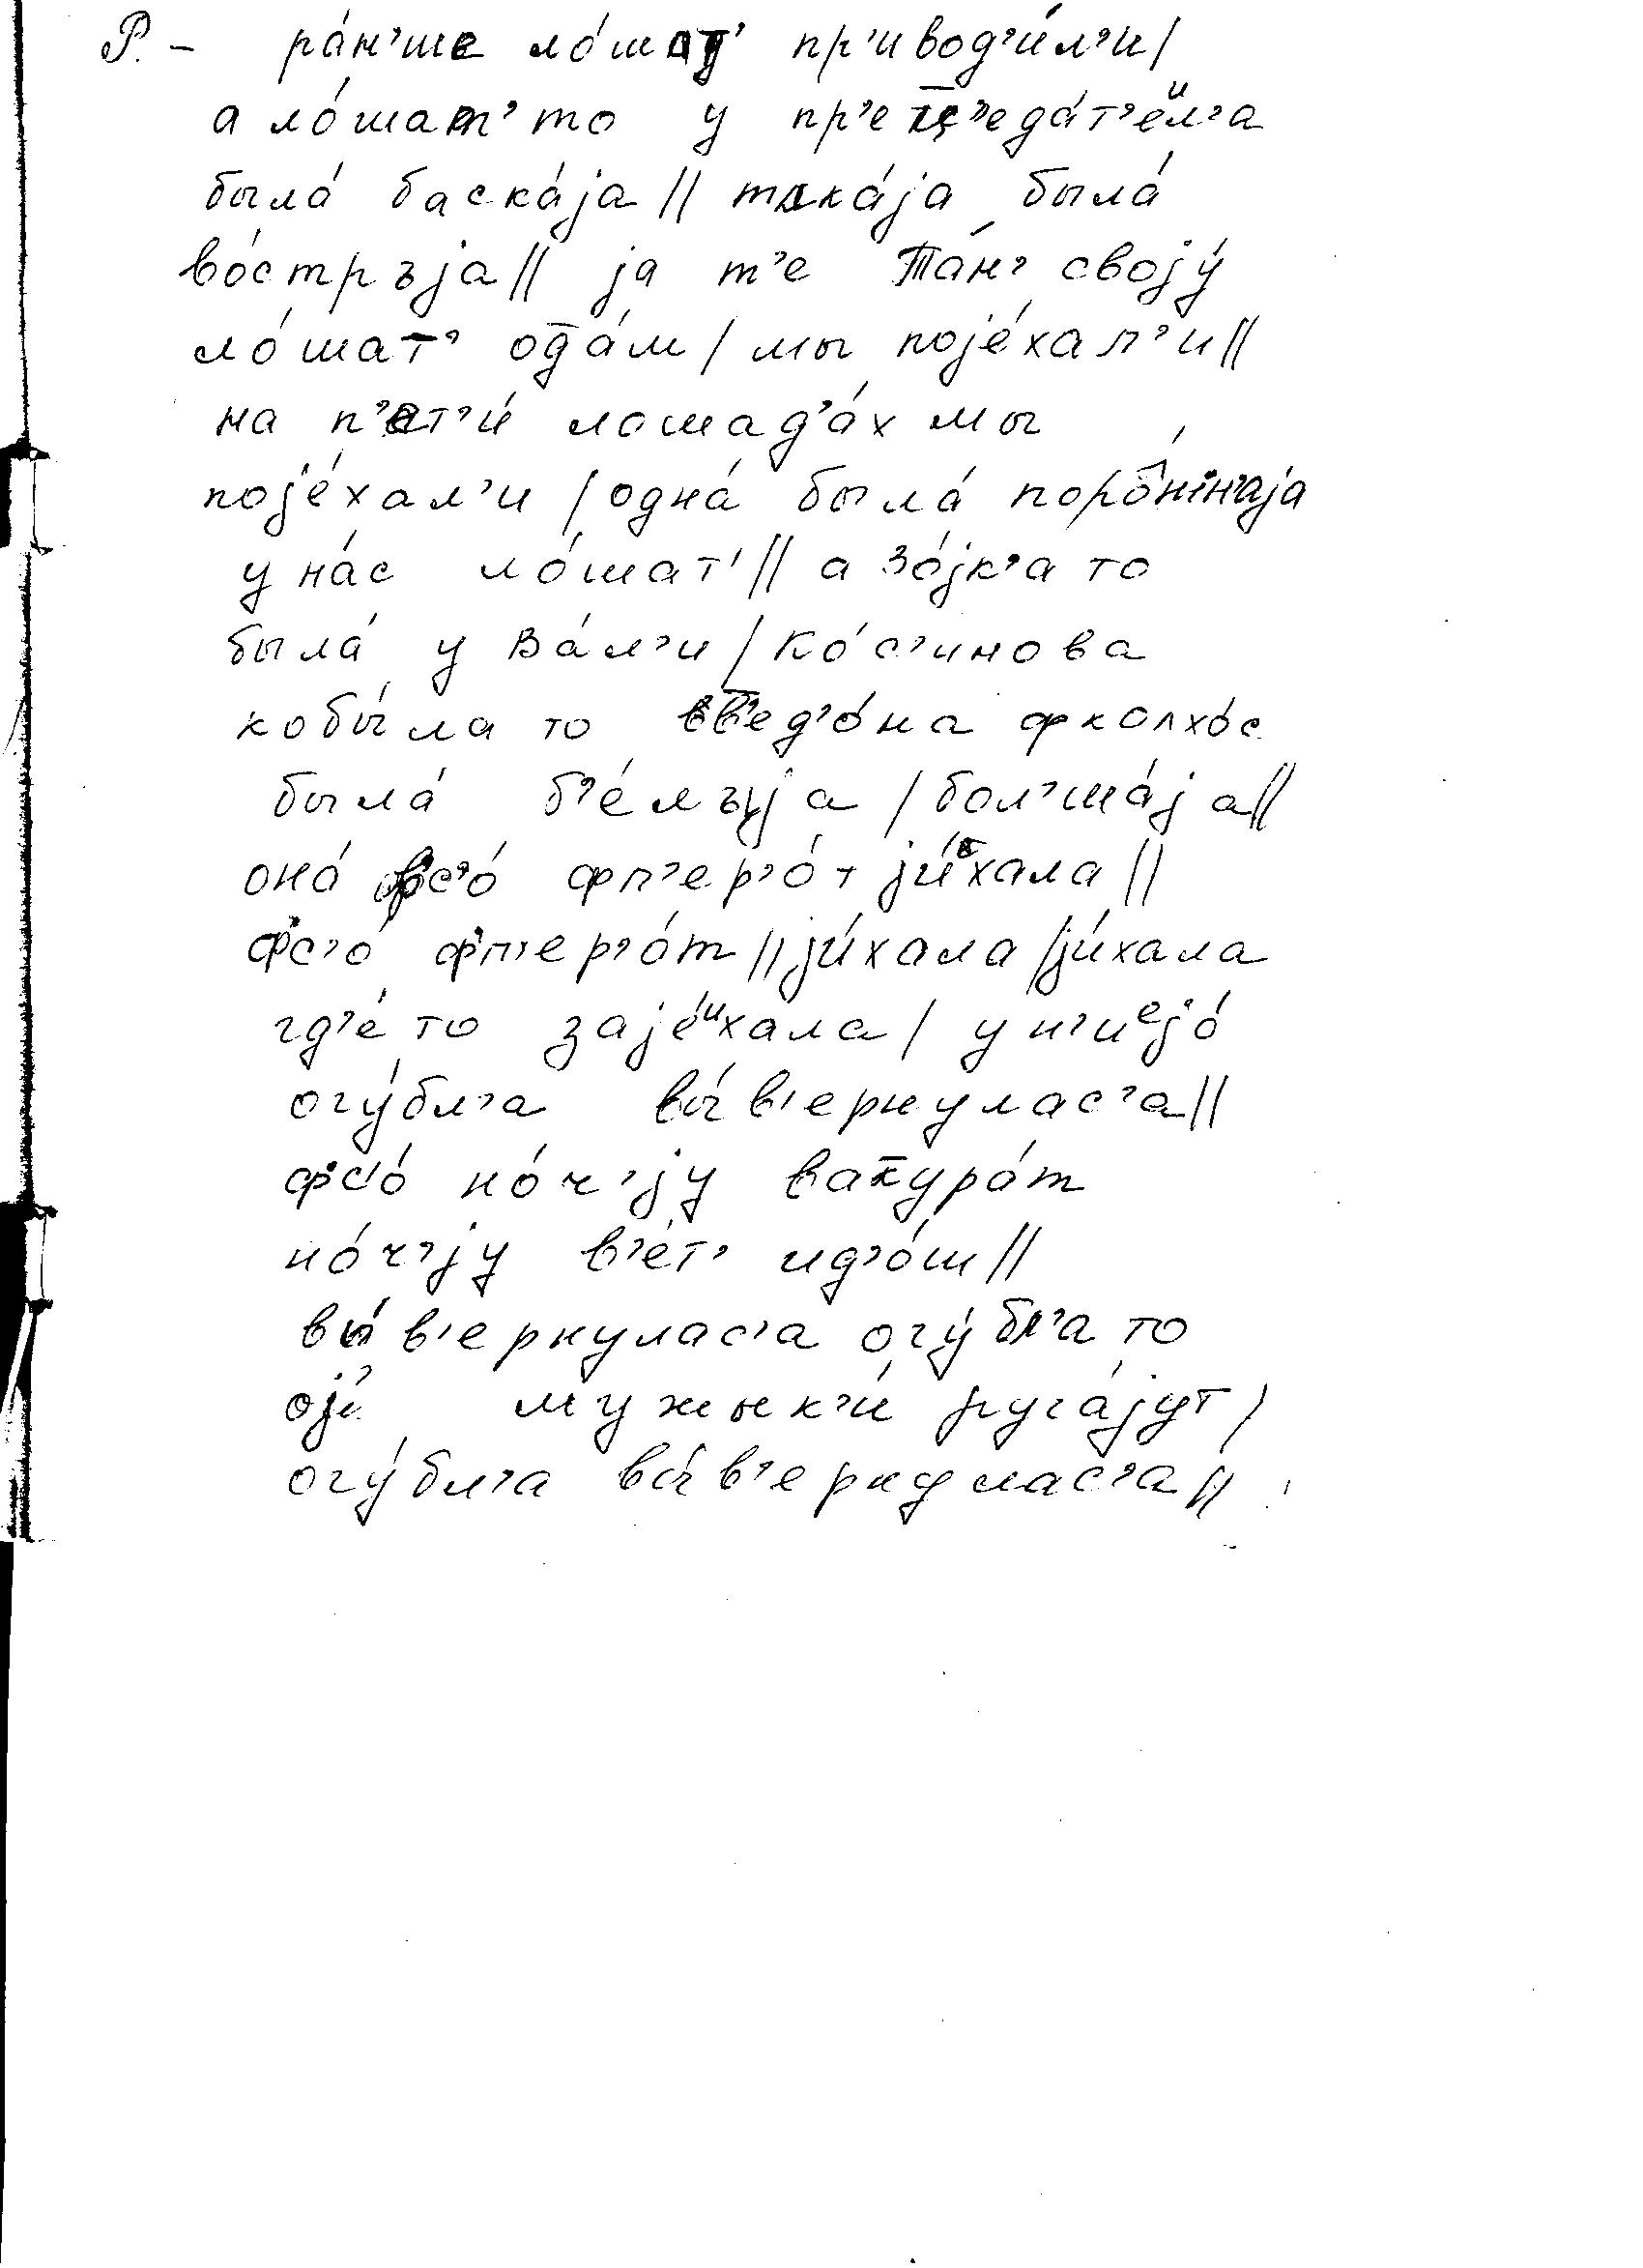 Р. – ра́н'ше ло́шат' пр'ивод'и́л'и/
а ло́шат' то у пр'ец̅'еда́т'еил'а
была́ баска́jа// така́jа была́
во́стръjа// jа т'е Та́н' своjу́
ло́шат' од̅а́м/ мы поjе́хал'и//
на п'ет'и́ лошад'а́х мы
поjе́хал'и /одна́ была́ поро̂́н'н'аjа
у на́с ло́шат'// а Зо́jк'а то
была́ у Ва́л'и/ Ко́с'инова
кобы́ла то в̅'ед'о́на фколхо́с
была́ б'е́лъjа /бол'ша́jа//
она́ фс'о́ фп'ер'о́т jи́ехала//
ф'с'о́ ф'п'ер'о́т// jи́хала /jи́хала
гд'е́ то заjе́ихала/ у н'иеjо́
огу́бл'а вы́в'ернулас'а//
ф'с'о́ но́ч'jу вак̅ура́т
но́ч'jу в'е́т' ид'о́ш//
вы́в'ернулас'а огу́бл'а то
оjе́ мужык'и́ руга́jут/
огу́бл'а вы́в'ернулас'а//